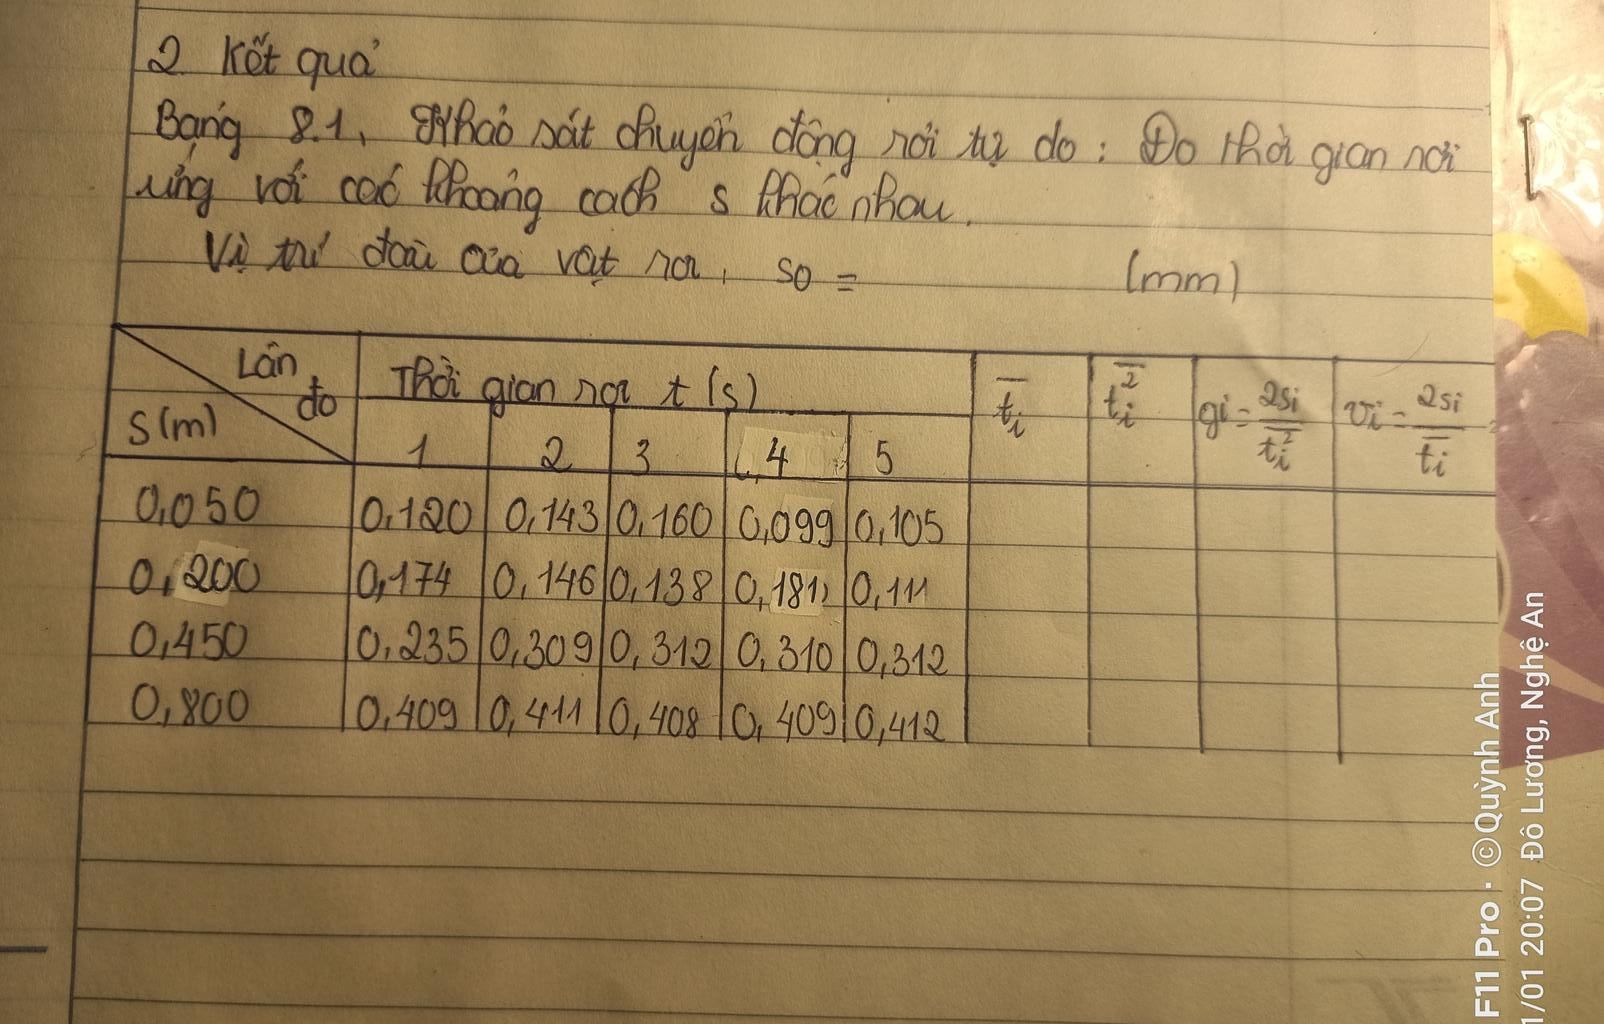 2 Kết quả
Bảng 8.1, Khảo sát chuyển động rơi tự do : Đo thời gian rơi
ứng với các khoảng cách s khác nhau.
Vị trí đầu của vật rơi, so = (mm)
Lần đo
S(m)
Thời gian rơi t (s)
1 2 3 4 5
t̅i
t̅i²
gi = 2si / t̅i²
vi = 2si / t̅i =
0,050 0,120 0,143 0,160 0,099 0,105
0,200 0,174 0,146 0,138 0,181 0,111
0,450 0,235 0,309 0,312 0,310 0,312
0,800 0,409 0,411 0,408 0,409 0,412
F11 Pro · ©Quỳnh Anh
1/01 20:07 Đô Lương, Nghệ An